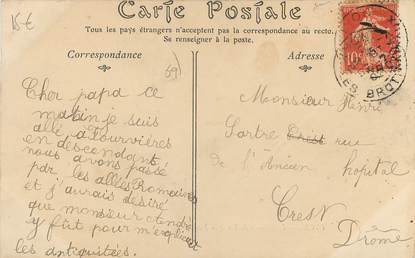 15 €
Carte Postale
Tous les pays étrangers n'acceptent pas la correspondance au recto.
Se renseigner à la poste.
Correspondance
Adresse
69
10
LES BROT
Cher papa ce
matin je suis
allé a Fourvières
en descendant
nous avons passé
par les allés Romaines
et j'aurais désiré
que monsieur André
y fut pour m'expliquer
les antiquitées.
Monsieur Henri
Sartre rue
de l'Ancien hopital
Crest
Drôme